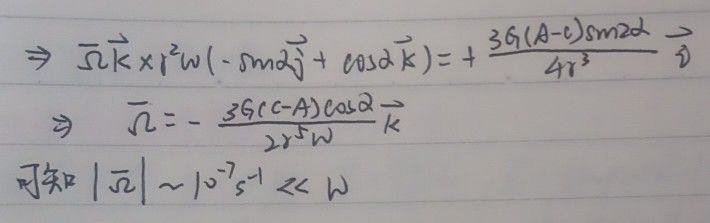 ⇒ Ω̄k⃗ × r²ω(-sinαj⃗ + cosαk⃗) = + 3G(A-C)sin2α / 4r³ i⃗
⇒ Ω̄ = - 3G(C-A)cosα / 2r⁵ω k⃗
可知 |Ω̄| ~ 10⁻⁷s⁻¹ << ω